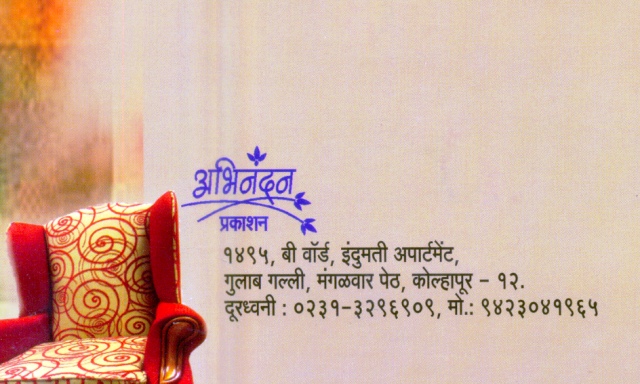 अभिनंदन
प्रकाशन
१४९५, बी वॉर्ड, इंदुमती अपार्टमेंट,
गुलाब गल्ली, मंगळवार पेठ, कोल्हापूर - १२.
दूरध्वनी : ०२३१-३२९६९०९, मो.: ९४२३०४१९६५